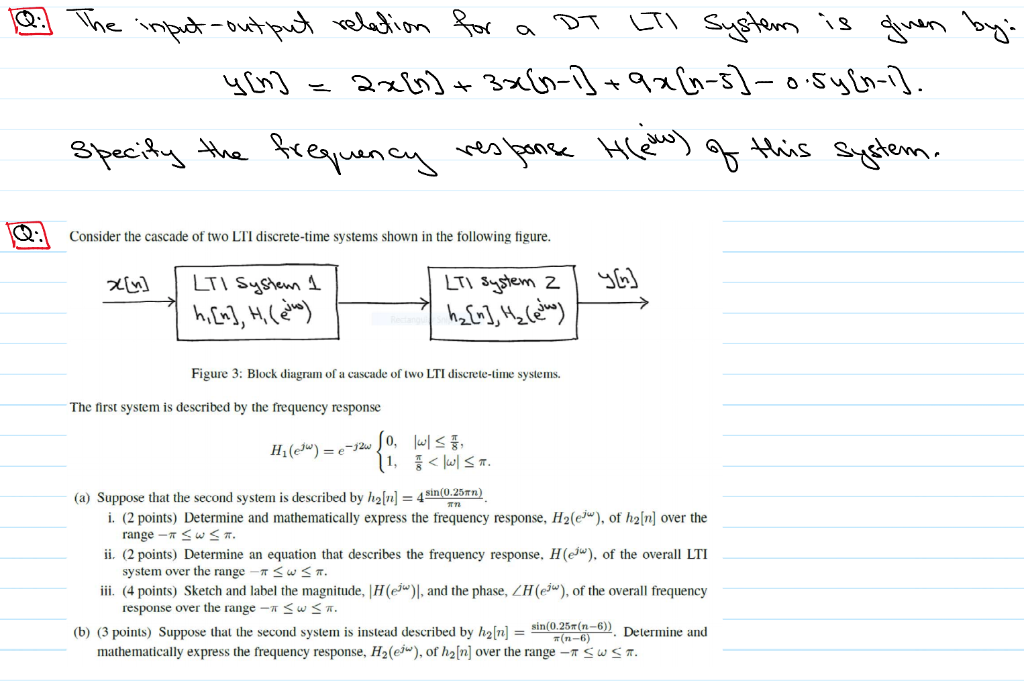 Q: The input-output relation for a DT LTI System is given by:
y[n] = 2x[n] + 3x[n-1] + 9x[n-5] - 0.5y[n-1].
Specify the frequency response H(e^{jω}) of this system.
Q: Consider the cascade of two LTI discrete-time systems shown in the following figure.
x[n] LTI System 1 LTI System 2 y[n]
h₁[n], H₁(e^{jω}) h₂[n], H₂(e^{jω})
Figure 3: Block diagram of a cascade of two LTI discrete-time systems.
The first system is described by the frequency response
H₁(e^{jω}) = e^{-j2ω} { 0, |ω| ≤ π/8,
1, π/8 < |ω| ≤ π.
(a) Suppose that the second system is described by h₂[n] = 4 sin(0.25πn)/πn.
i. (2 points) Determine and mathematically express the frequency response, H₂(e^{jω}), of h₂[n] over the
range −π ≤ ω ≤ π.
ii. (2 points) Determine an equation that describes the frequency response, H(e^{jω}), of the overall LTI
system over the range −π ≤ ω ≤ π.
iii. (4 points) Sketch and label the magnitude, |H(e^{jω})|, and the phase, ∠H(e^{jω}), of the overall frequency
response over the range −π ≤ ω ≤ π.
(b) (3 points) Suppose that the second system is instead described by h₂[n] = sin(0.25π(n−6))/π(n−6). Determine and
mathematically express the frequency response, H₂(e^{jω}), of h₂[n] over the range −π ≤ ω ≤ π.